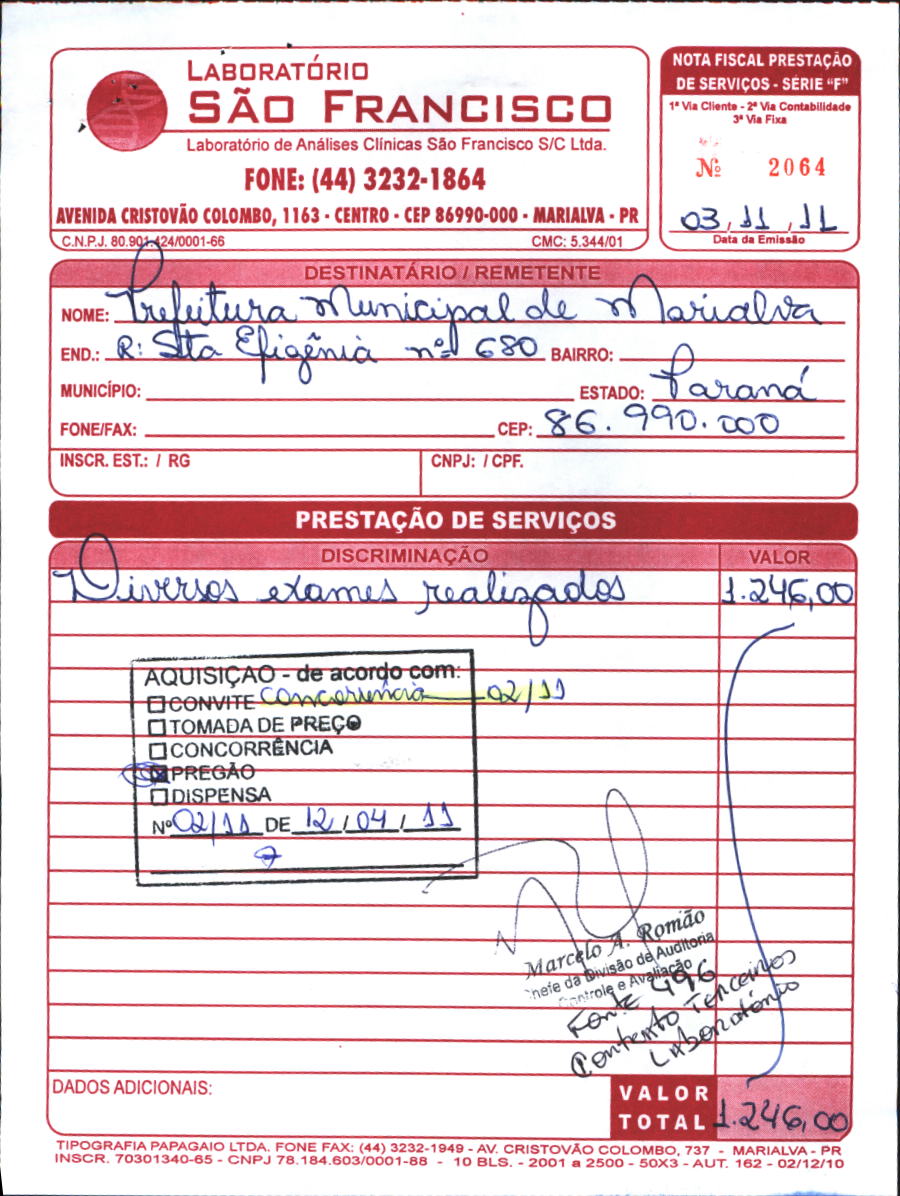 LABORATÓRIO
SÃO FRANCISCO
Laboratório de Análises Clínicas São Francisco S/C Ltda.
FONE: (44) 3232-1864
AVENIDA CRISTOVÃO COLOMBO, 1163 - CENTRO - CEP 86990-000 - MARIALVA - PR
C.N.P.J. 80.901.424/0001-66 CMC: 5.344/01
NOTA FISCAL PRESTAÇÃO
DE SERVIÇOS - SÉRIE "F"
1ª Via Cliente - 2ª Via Contabilidade
3ª Via Fixa
Nº 2064
03, 11, 11
Data da Emissão
DESTINATÁRIO / REMETENTE
NOME: Prefeitura Municipal de Marialva
END.: R: Sta Efigênia nº 680 BAIRRO:
MUNICÍPIO: ESTADO: Paraná
FONE/FAX: CEP: 86.990.000
INSCR. EST.: / RG CNPJ: / CPF.
PRESTAÇÃO DE SERVIÇOS
DISCRIMINAÇÃO VALOR
Diversos exames realizados 1.246,00
AQUISIÇAO - de acordo com:
CONVITE Concorrência 02/11
TOMADA DE PREÇO
CONCORRÊNCIA
PREGÃO
DISPENSA
Nº 02/11 DE 12/04/11
Marcelo A. Romão
Chefe da Divisão de Auditoria
Controle e Avaliação
Fonte 496
Contrato Terceiros
Laboratório
DADOS ADICIONAIS:
VALOR TOTAL 1.246,00
TIPOGRAFIA PAPAGAIO LTDA. FONE FAX: (44) 3232-1949 - AV. CRISTOVÃO COLOMBO, 737 - MARIALVA - PR
INSCR. 70301340-65 - CNPJ 78.184.603/0001-88 - 10 BLS. - 2001 a 2500 - 50X3 - AUT. 162 - 02/12/10